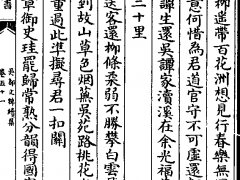 柳遥帶百花洲想見行春樂無
意何惜為君道官守不可虛還
譚生還吳譚家瀆溪在余光福
二十里
送客還柳條柔弱不勝攀白雲
到故山草色烟蕪吳苑路桃花
重過此準擬尋君一扣關
章御史珪罷歸常熟分韻得國
吳都文粹續集
卷五十一